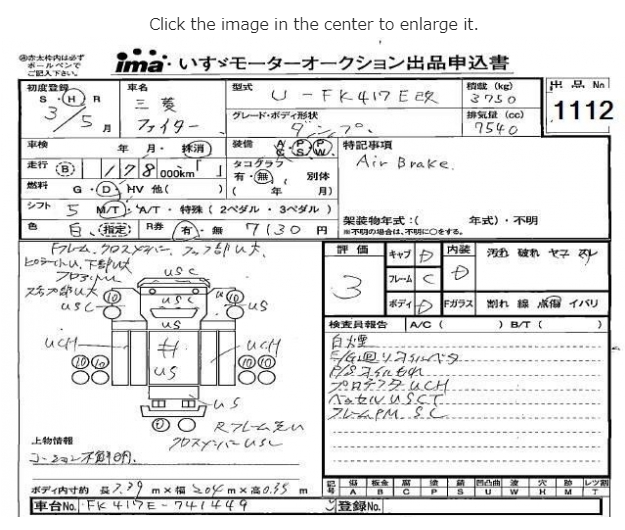 Click the image in the center to enlarge it.
㊟赤太枠内は必ず
ボールペンで
ご記入下さい。
ima・いすゞモーターオークション出品申込書
初度登録
S・H・R
3/5月
車名
三菱
ファイター
型式
U-FK417E改
積載 (kg)
3750
出品No
1112
グレード・ボディ形状
ダンプ。
排気量 (cc)
7540
車検
年 月・抹消
装備
特記事項
Air Brake.
走行
(B)
178 000km
タコグラフ
有・無 別体
( 年 月)
燃料
G・D・HV 他( )
シフト
5 M/T・A/T・特殊(2ペダル・3ペダル)
架装物年式:( 年式)・不明
※不明の場合は、不明に○をする。
色
白 (指定)
R券
有・無 7130円
フレーム、クロスメンバー、
下部U大
USC
USC
USC
US
US
UCH
UCH
US
US
Rフレーム
クロスメンバーUSC
上物情報
ボディ内寸約 長3.39m×幅2.04m×高0.35m
車台No. FK417E-741449
評価
3
キャブ D
フレーム C
ボディ D
内装
D
Fガラス
汚れ 破れ ヤケ スレ
割れ 線 点傷 イバリ
検査員報告 A/C ( ) B/T ( )
白煙
E/G廻リオイルベタ
P/Sオイルもれ
プロテクタUCH
ベッセルUSCT
フレームPM.SC
記号
傷 板金 腐 塗 錆 凹凸曲 波 穴 跡 レンズ割
A B C P S U W H M T
登録No.